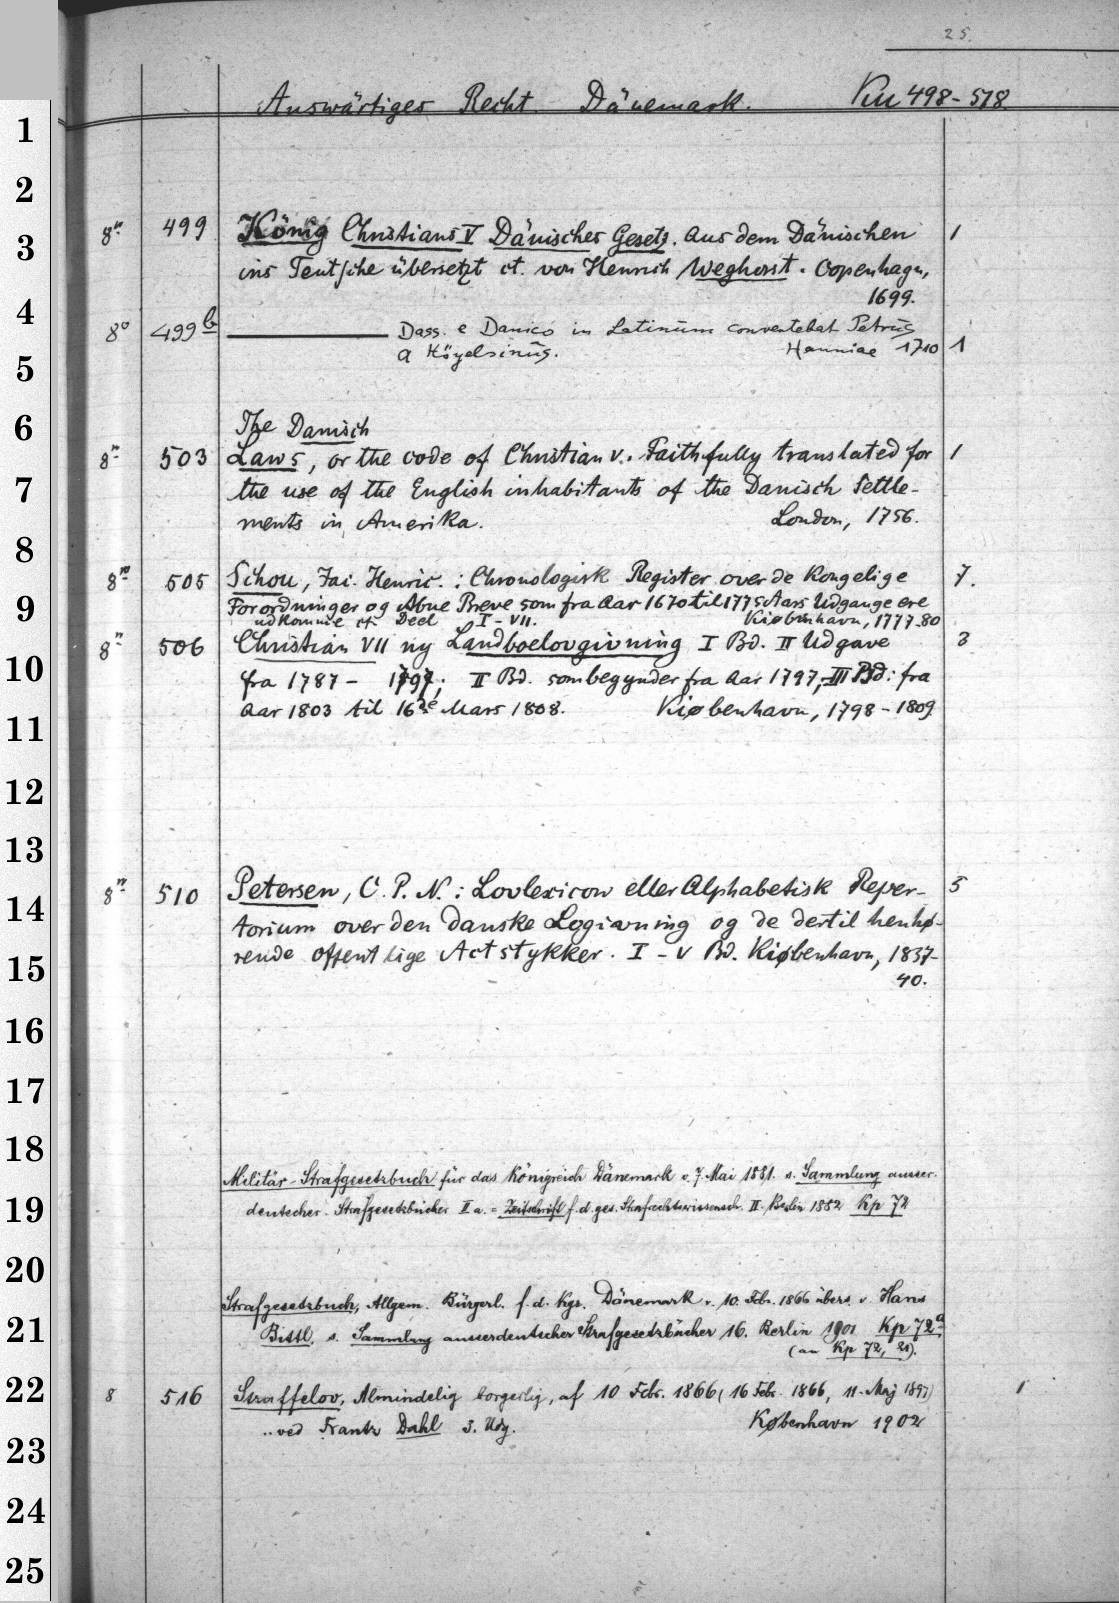 25.
Auswärtiges Recht. Dänemark. Km 498-518.
1
2
8º 499 König Christians V Dänisches Gesetz. Aus dem Dänischen 1
3
ins Teutsche übersetzt et. von Henrich Weghorst. Copenhagn,
1699.
4
8º 499 b Dass. e Danico in Latinum convertebat Petrus
a Höyelsinus. Hauniae 1710 1
5
6
The Danisch
8º 503 Laws, or the code of Christian V. Faithfully translated for 1
7
the use of the English inhabitants of the Danisch Settle-
ments in Amerika. London, 1756.
8
8º 505 Schou, Jac. Henric.: Chronologisk Register over de Kongelige 7.
9
Forordninger og Abne Breve som fra Aar 1670 til 1775 Aars Udgange ere
udkomne et Deel I-VII. Kiøbenhavn, 1777-80
8º 506 Christian VII ny Landboelovgivning I Bd. II Udgave 3
10
fra 1787 - 1797; II Bd. som begynder fra Aar 1797; III Bd: fra
Aar 1803 til 16de Mars 1808. Kiøbenhavn, 1798-1809
11
12
13
8º 510 Petersen, C. P. N.: Lovlexicon eller Alphabetisk Reper- 5
14
torium over den danske Logivning og de dertil henhø-
rende offentlige Actstykker. I-V Bd. Kiøbenhavn, 1837-
15
40.
16
17
18
Militär-Strafgesetzbuch für das Königreich Dänemark v. 7. Mai 1881. s. Sammlung ausser-
19
deutscher Strafgesetzbücher II a. = Zeitschrift f. d. ges. Strafrechtswissensch. II. Berlin 1882 Kp 72
20
Strafgesetzbuch, Allgem. Bürgerl. f. d. Kgr. Dänemark v. 10. Febr. 1866 übers. v. Hans
21
Bittl. s. Sammlung ausserdeutscher Strafgesetzbücher 16. Berlin 1901 Kp 72a
(an Kp 72, 21).
22
8 516 Straffelov, Almindelig borgerlig, af 10 Febr. 1866 (16 Febr. 1866, 11. Maj 1897) 1
.. ved Frantz Dahl 3. Udg. København 1902
23
24
25